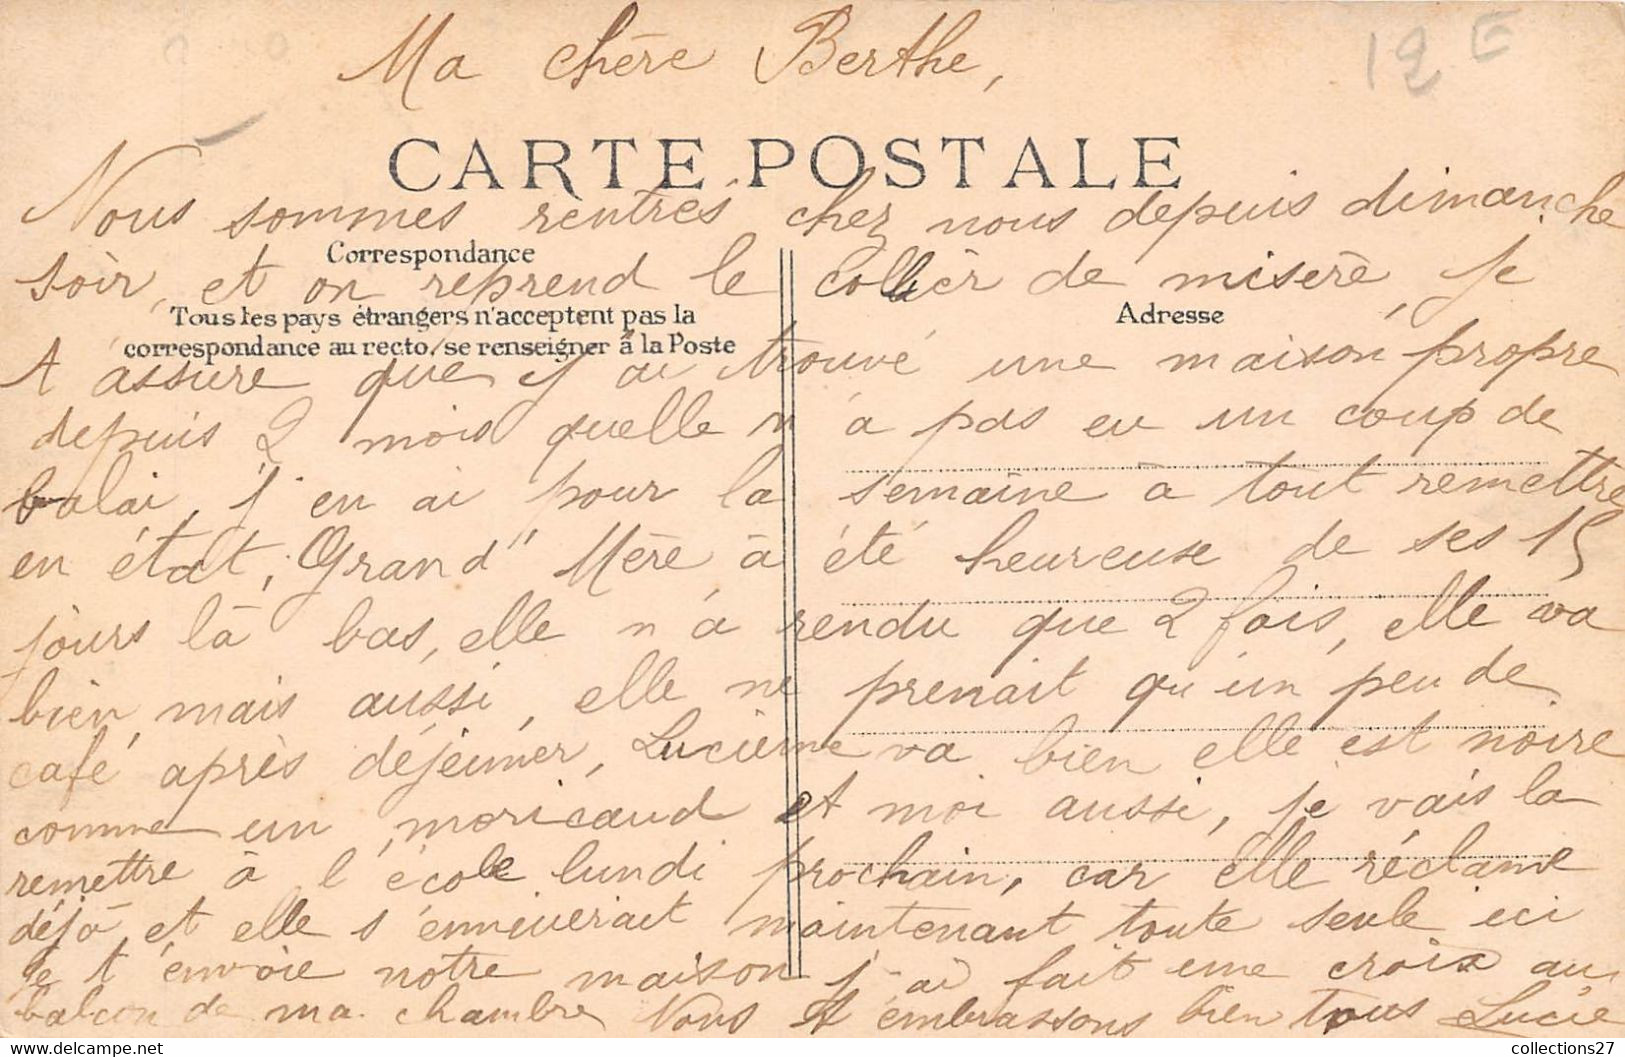 12 E
Ma chère Berthe,
CARTE POSTALE
Nous sommes rentrés chez nous depuis dimanche
Correspondance
soir, et on reprend le collier de misère, Je
Tous les pays étrangers n'acceptent pas la
Adresse
correspondance au recto, se renseigner à la Poste
t'assure que j'ai trouvé une maison propre
depuis 2 mois quelle n'a pas eu un coup de
balai, j'en ai pour la semaine à tout remettre
en état, Grand' Mère à été heureuse de ses 15
jours là bas, elle n'a rendu que 2 fois, elle va
bien, mais aussi, elle ne prenait qu'un peu de
café après déjeuner, Lucienne va bien elle est noire
comme un moricaud et moi aussi, je vais la
remettre à l'école lundi prochain, car elle réclame
déjà, et elle s'ennuierait maintenant toute seule ici
Je t'envoie notre maison j'ai fait une croix au
balcon de ma chambre Nous t'embrassons bien tous Lucie
collections27